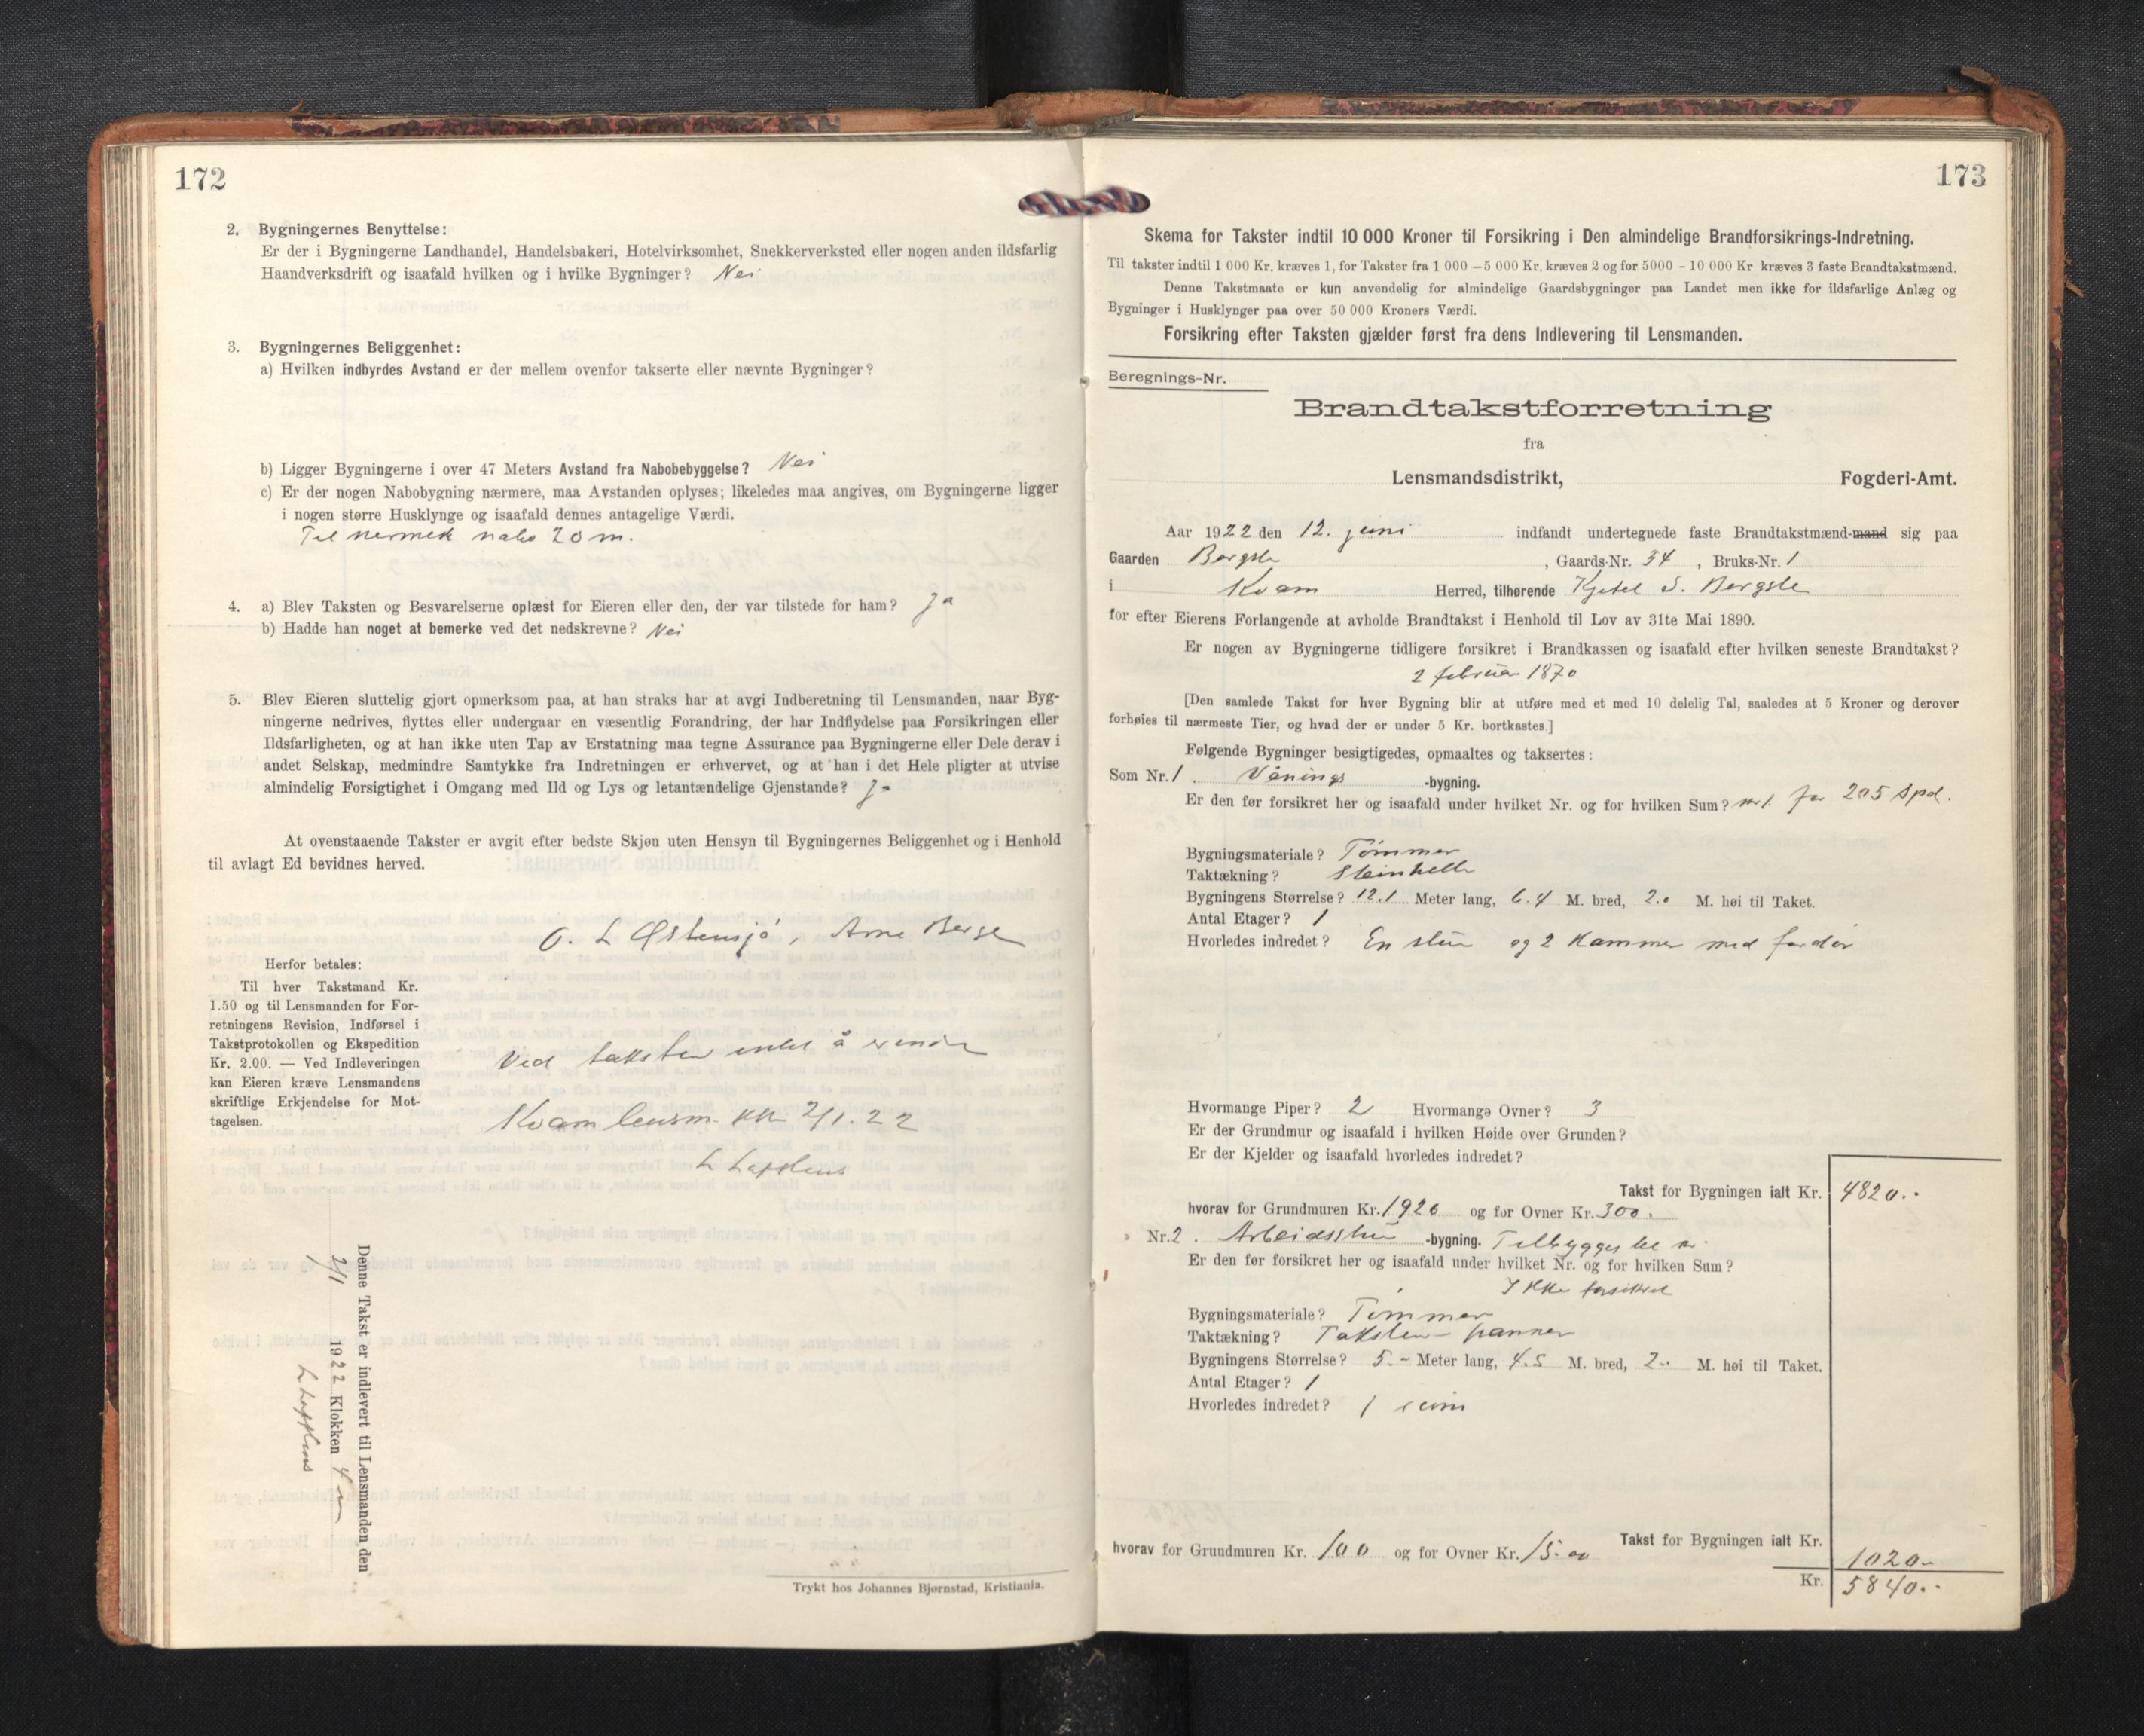 172
2. Bygningernes Benyttelse:
Er der i Bygningerne Landhandel, Handelsbakeri, Hotelvirksomhet, Snekkerverksted eller nogen anden ildsfarlig
Haandverksdrift og isaafald hvilken og i hvilke Bygninger? Nei
3. Bygningernes Beliggenhet:
a) Hvilken indbyrdes Avstand er der mellem ovenfor takserte eller nævnte Bygninger?
b) Ligger Bygningerne i over 47 Meters Avstand fra Nabobebyggelse? Nei
c) Er der nogen Nabobygning nærmere, maa Avstanden oplyses; likeledes maa angives, om Bygningerne ligger
i nogen større Husklynge og isaafald dennes antagelige Værdi.
Til nermek nabo 20 m.
4. a) Blev Taksten og Besvarelserne oplæst for Eieren eller den, der var tilstede for ham? Ja
b) Hadde han noget at bemerke ved det nedskrevne? Nei
5. Blev Eieren sluttelig gjort opmerksom paa, at han straks har at avgi Indberetning til Lensmanden, naar Byg-
ningerne nedrives, flyttes eller undergaar en væsentlig Forandring, der har Indflydelse paa Forsikringen eller
Ildsfarligheten, og at han ikke uten Tap av Erstatning maa tegne Assurance paa Bygningerne eller Dele derav i
andet Selskap, medmindre Samtykke fra Indretningen er erhvervet, og at han i det Hele pligter at utvise
almindelig Forsigtighet i Omgang med Ild og Lys og letantændelige Gjenstande? Ja
At ovenstaaende Takster er avgit efter bedste Skjøn uten Hensyn til Bygningernes Beliggenhet og i Henhold
til avlagt Ed bevidnes herved.
O. L Østensjø, Arne Berge
Herfor betales:
Til hver Takstmand Kr.
1.50 og til Lensmanden for For-
retningens Revision, Indførsel i
Takstprotokollen og Ekspedition
Kr. 2.00. — Ved Indleveringen
kan Eieren kræve Lensmandens
skriftlige Erkjendelse for Mot-
tagelsen.
Ved taksten intet å
Kvam lensm. 2/1. 22
Denne Takst er indlevert til Lensmanden den
2/1 1922 Klokken 4
Trykt hos Johannes Bjørnstad, Kristiania.
173
Skema for Takster indtil 10 000 Kroner til Forsikring i Den almindelige Brandforsikrings-Indretning.
Til takster indtil 1 000 Kr. kræves 1, for Takster fra 1 000 — 5 000 Kr. kræves 2 og for 5000 - 10 000 Kr kræves 3 faste Brandtakstmænd.
Denne Takstmaate er kun anvendelig for almindelige Gaardsbygninger paa Landet men ikke for ildsfarlige Anlæg og
Bygninger i Husklynger paa over 50 000 Kroners Værdi.
Forsikring efter Taksten gjælder først fra dens Indlevering til Lensmanden.
Beregnings-Nr.
Brandtakstforretning
fra
Lensmandsdistrikt, Fogderi-Amt.
Aar 1922 den 12. juni indfandt undertegnede faste Brandtakstmænd-mand sig paa
Gaarden Bergsle, Gaards-Nr. 34, Bruks-Nr. 1
i Kvam Herred, tilhørende Kjetel S. Bergsle
for efter Eierens Forlangende at avholde Brandtakst i Henhold til Lov av 31te Mai 1890.
Er nogen av Bygningerne tidligere forsikret i Brandkassen og isaafald efter hvilken seneste Brandtakst?
2 februar 1870
[Den samlede Takst for hver Bygning blir at utføre med et med 10 delelig Tal, saaledes at 5 Kroner og derover
forhøies til nærmeste Tier, og hvad der er under 5 Kr. bortkastes.]
Følgende Bygninger besigtigedes, opmaaltes og taksertes:
Som Nr. 1. Vånings -bygning.
Er den før forsikret her og isaafald under hvilket Nr. og for hvilken Sum? nr 1. for 205 spd.
Bygningsmateriale? Tømmer
Taktækning? Steinhelle
Bygningens Størrelse? 12.1 Meter lang, 6.4 M. bred, 2.0 M. høi til Taket.
Antal Etager? 1
Hvorledes indredet? En stue og 2 kammer med fordør
Hvormange Piper? 2 Hvormange Ovner? 3
Er der Grundmur og isaafald i hvilken Høide over Grunden?
Er der Kjelder og isaafald hvorledes indredet?
Takst for Bygningen ialt Kr. 4820..
hvorav for Grundmuren Kr. 1920 og for Ovner Kr. 300.
" Nr. 2. Arbeidsstue -bygning. Tilbygget
Er den før forsikret her og isaafald under hvilket Nr. og for hvilken Sum?
Ikke forsikret
Bygningsmateriale? Tømmer
Taktækning? Taksten-panner
Bygningens Størrelse? 5.- Meter lang, 4.5 M. bred, 2.. M. høi til Taket.
Antal Etager? 1
Hvorledes indredet? 1 rum
Takst for Bygningen ialt Kr. 1020-
hvorav for Grundmuren Kr. 100 og for Ovner Kr. 15.00
Kr. 5840..